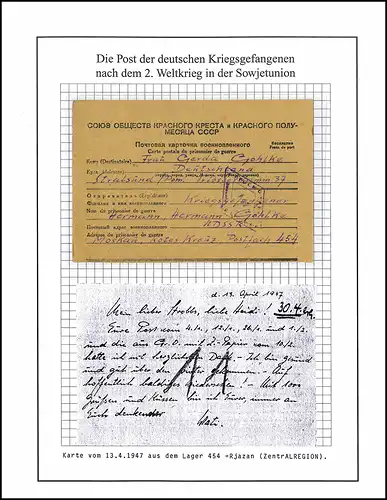 Die Post der deutschen Kriegsgefangenen
nach dem 2. Weltkrieg in der Sowjetunion
СОЮЗ ОБЩЕСТВ КРАСНОГО КРЕСТА и КРАСНОГО ПОЛУ-
МЕСЯЦА СССР
Почтовая карточка военнопленного
Carte postale du prisonnier de guerre
Бесплатно
Franc de port
Кому (Destinataire) Frau Gerda Gohlke
Куда (Adresse) Deutschland
Stralsund
37
Отправитель (Expéditeur) Kriegsgefangener
Фамилия и имя военнопленного
Nom du prisonnier de guerre
Hermann, Hermann Gohlke
Почтовый адрес военнопленного UdSSR
Adresse du prisonnier de guerre
Moskau, Rotes Kreuz Postfach 454
d. 13. April 1947
Mein liebes liebe Heidi! 30.4.
Eure Post vom 4./1., 12./1., 26./1. und 1./2.
und die aus G.O. mit Papier vom 10./2.
hatte ich mit herzlichstem Dank. - Ich bin gesund
und gut über den Winter gekommen. - Auf
hoffentlich baldiges Wiedersehen! - Mit 1000
Grüßen und Küssen bin ich Euer, immer an
Euch denkender
Vati.
Karte vom 13.4.1947 aus dem Lager 454 =Rjazan (ZentrALREGION).